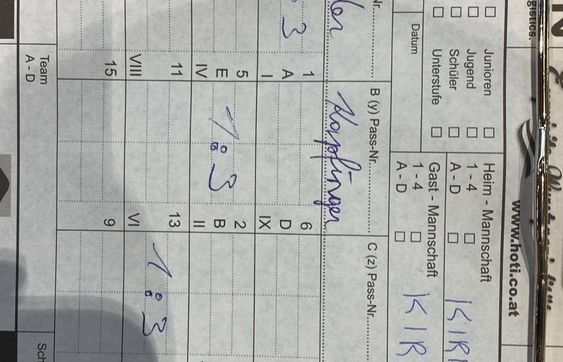 www.hoti.co.at
Junioren
Jugend
Schüler
Unterstufe
Heim - Mannschaft
1 - 4
A - D
Gast - Mannschaft
1 - 4
A - D
KIR
KIR
Datum
B (y) Pass-Nr.
C (z) Pass-Nr.
Kapfinger
3
1 6
A D
I IX
5 2
E B
IV II
1:3
11 13
VIII VI
1:3
15 9
Team
A - D
Sch